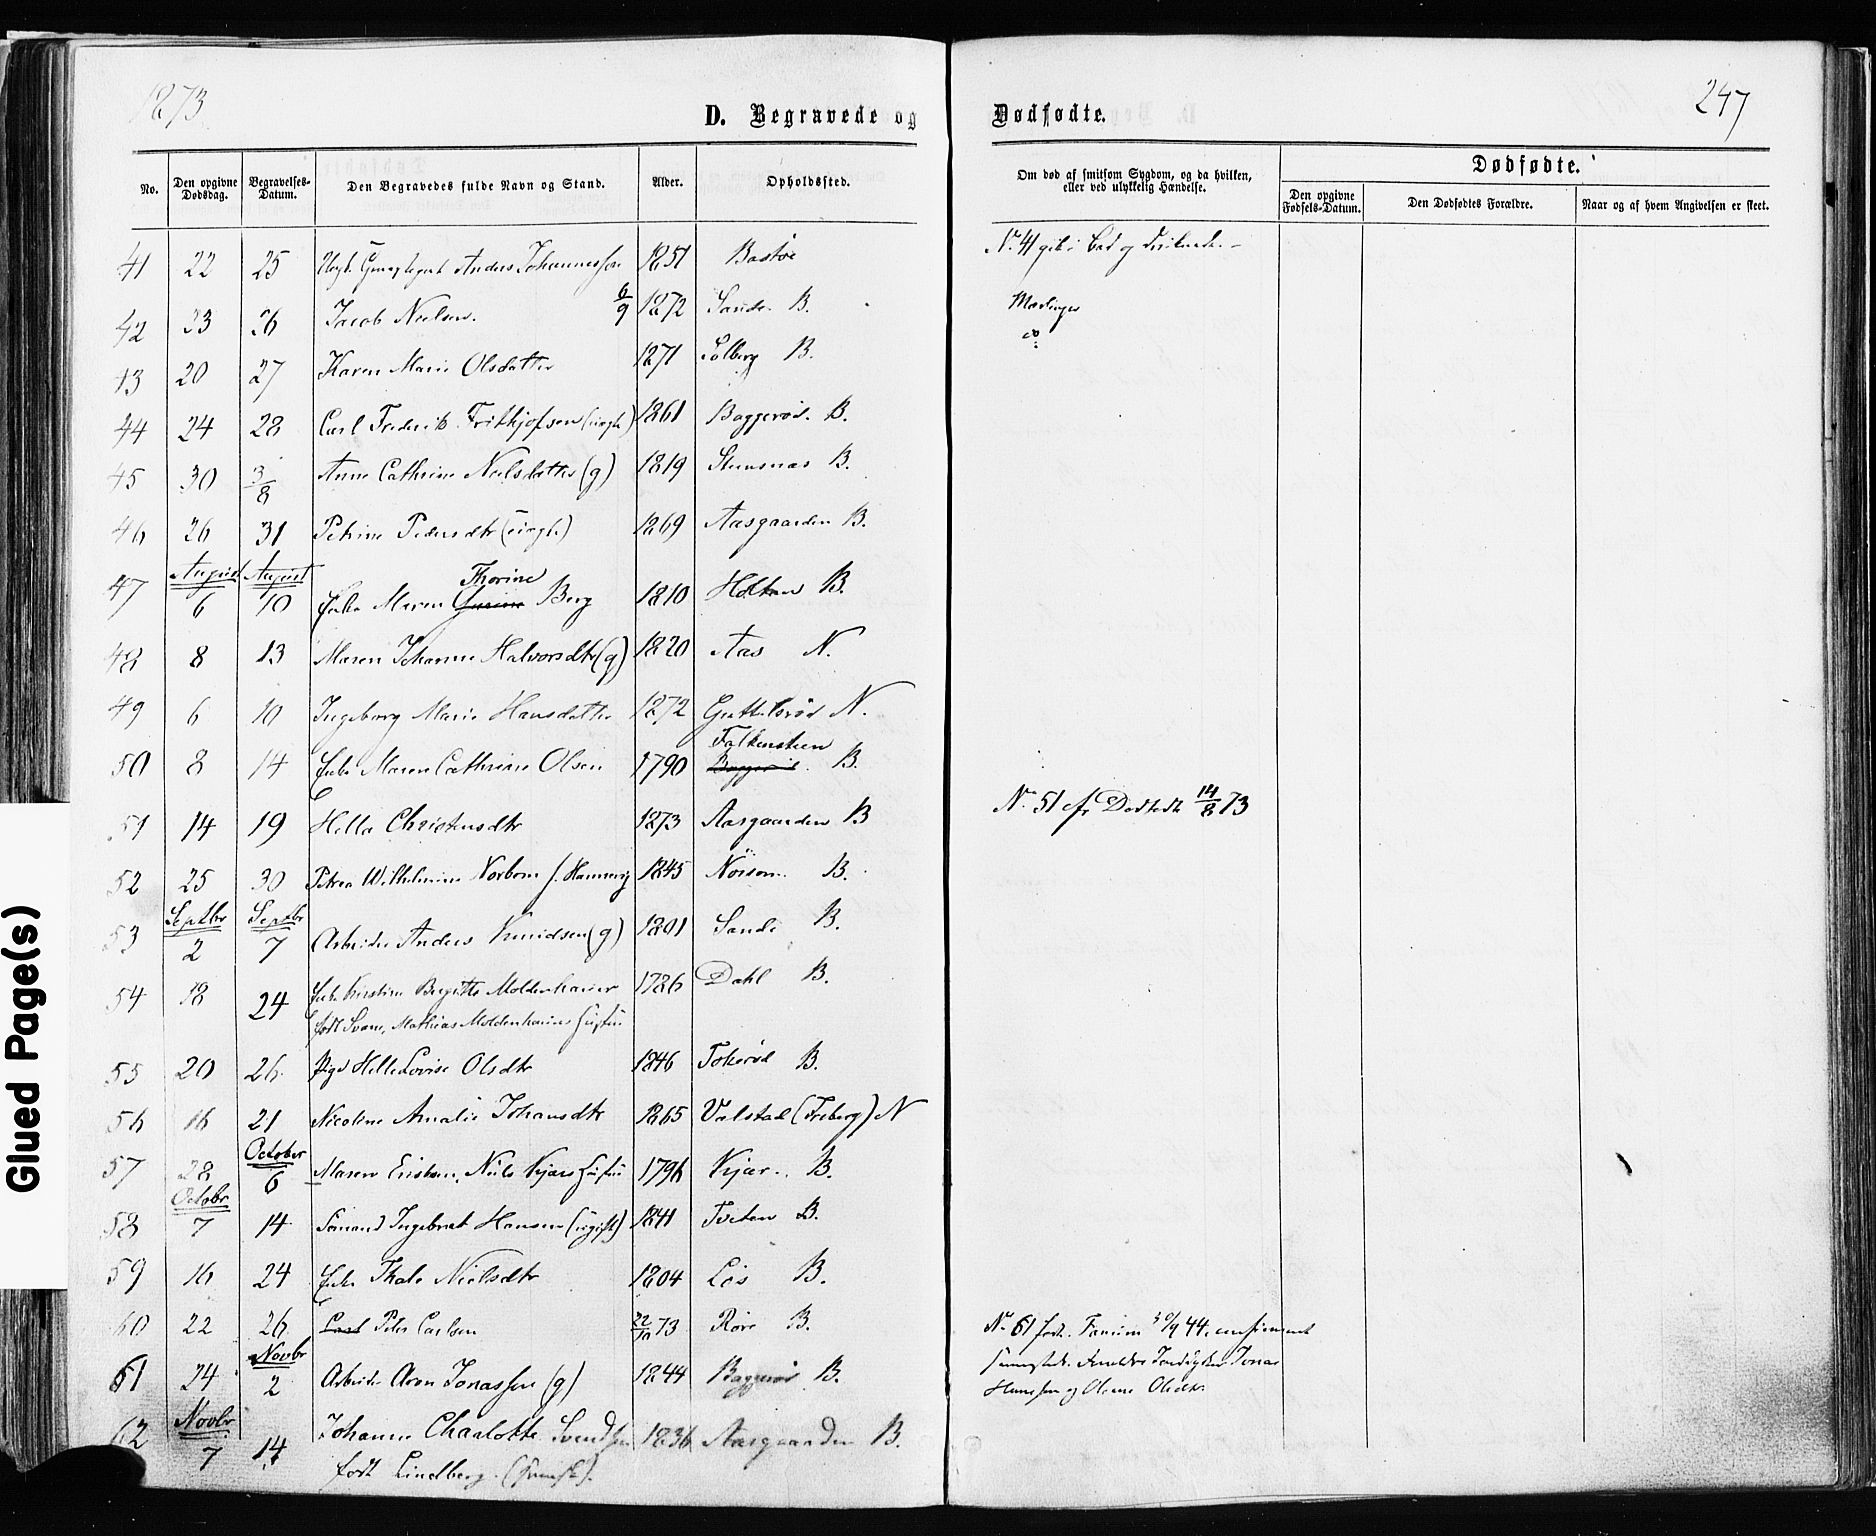 1873
D. Begravede og Dødfødte.
247
No. Den opgivne Dødsdag. Begravelses-Datum. Den Begravedes fulde Navn og Stand. Alder. Opholdssted. Om død af smitsom Sygdom, og da hvilken, eller ved ulykkelig Hændelse. Dødfødte.
Den opgivne Fødsels-Datum. Den Dødfødtes Forældre. Naar og af hvem Angivelsen er skeet.
41 22 25 Anders Johannessen 1851 Bastøe No. 41 gik i Bad og druknede. –
42 23 26 Jacob Nielsen. 6/9 1872 Sande B. Mæslinger
43 20 27 Karen Marie Olsdatter 1871 Solberg B. do
44 24 28 Carl Frederik Frithjofsen (uægte) 1861 Baggerød. B.
45 30 3/8 Anne Cathrine Nielsdatter (g) 1819 B.
46 26 31 Petrine Pedersdtr (uægte) 1869 Aasgaarden B.
August August
47 6 10 Enke Maren Thorine Berg 1810 Holtan B.
48 8 13 Maren Johanne Halvorsdtr (g) 1820 Aas N.
49 6 10 Ingeborg Marie Hansdatter 1872 Guttelsrød N.
50 8 14 Enke Maren Cathrine Olsen 1790 Falkensteen
Baggerød. B.
51 14 19 Hella Christensdtr 1873 Aasgaarden B No. 51 cfr Dodsedt 14/8 73
52 25 30 Petrea Wilhelmine Norbom f. 1845 B.
Septbr Septbr
53 2 7 Arbeider Anders Knudsen (g) 1801 Sande B.
54 18 24 Enke Kirstine Birgitte Moldenhauer 1786 Dahl B.
født Svane, Mathias Moldenhauers Hustru
55 20 26 Pige Helle Lovise Olsdtr 1846 Tokerød B.
56 16 21 Nicoline Amalie Johansdtr 1865 Valstad (Freberg) N
October
57 28 6 Maren Niels Kjærs Hustru 1796 Kjær. B.
Octobr
58 7 14 Sømand Ingebret Hansen (ugift) 1841 Tveten B.
59 16 24 Enke Thale Nielsdtr 1804 Løs B.
60 22 26 Carl Peter Carlsen 22/10 73 Røre B. No. 61 født 30/9 44,
Novbr
61 24 2 Arbeider Aron Jonassen (g) 1844 Baggerød B. Forældre Jonas
Hansen og Olsdtr.
Novbr
62 7 14 Johanne Charlotte Svendsen 1836 Aasgaarden B.
født Lindberg. (Svensk).
Glued Page(s)